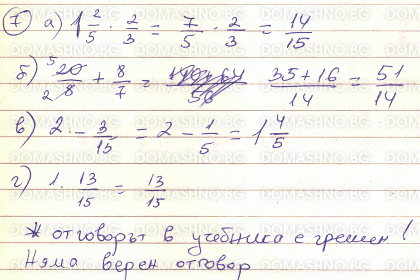 7 а) 1 2/5 · 2/3 = 7/5 · 2/3 = 14/15
б) 5 20/8 2 + 8/7 = 35+16/14 = 51/14
в) 2 - 3/15 = 2 - 1/5 = 1 4/5
г) 1 · 13/15 = 13/15
* отговорът в учебника е грешен!
Няма верен отговор